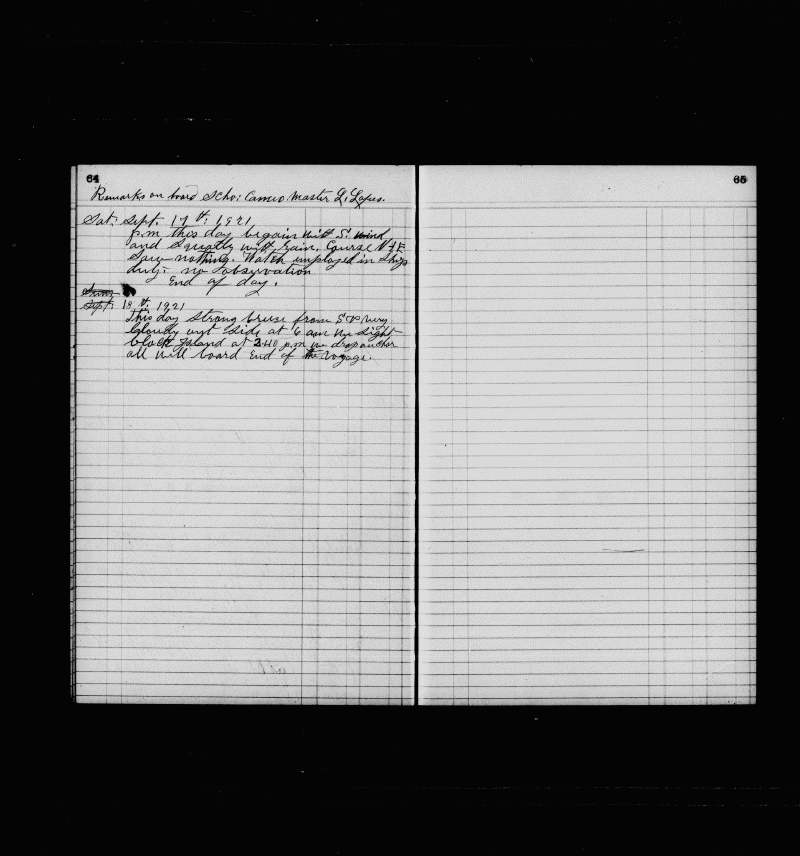 64
65
Remarks on board Scho: Cameo Master L. Lopes.
Sat: Sept. 17th: 1921
P.m this day begain with S. wind,
and Squally with rain. Course N
Saw nothing. Watch employed in Ships
duty: no observation
End of day.
Sept: 18th: 1921
This day Strong breese from S very
Cloudy at 6 am we Sight
block Island at 2.40 p.m we drop anchor
all well board End of the voyage.